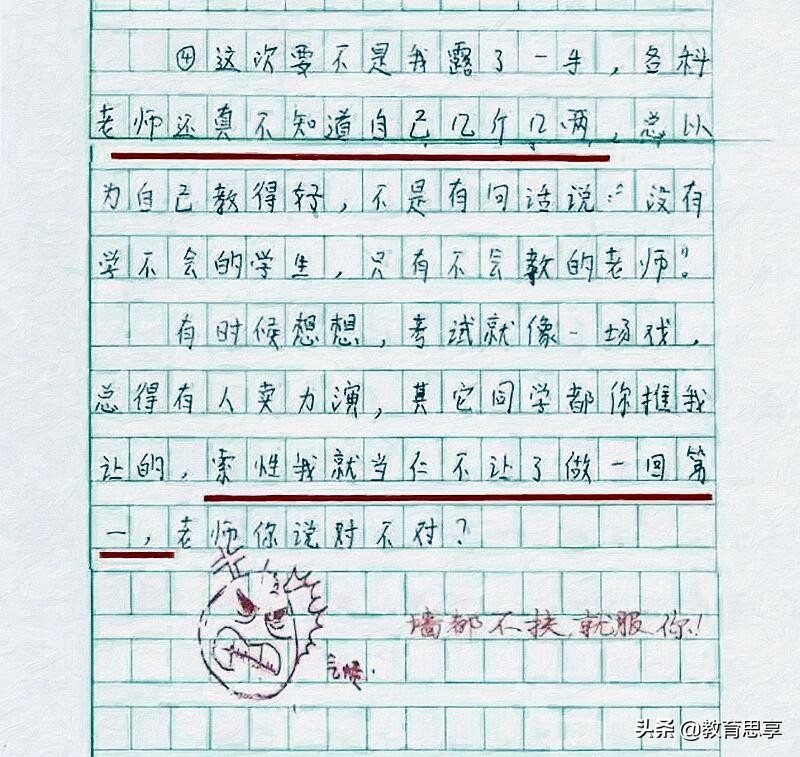 ④这次要不是我露了一手，各科
老师还真不知道自己几斤几两，总以
为自己教得好，不是有句话说："没有
学不会的学生，只有不会教的老师！
有时候想想，考试就像一场戏，
总得有人卖力演，其它同学都你推我
让的，索性我就当仁不让了做一回第
一，老师你说对不对？
墙都不扶，就服你！
头条 @教育思享